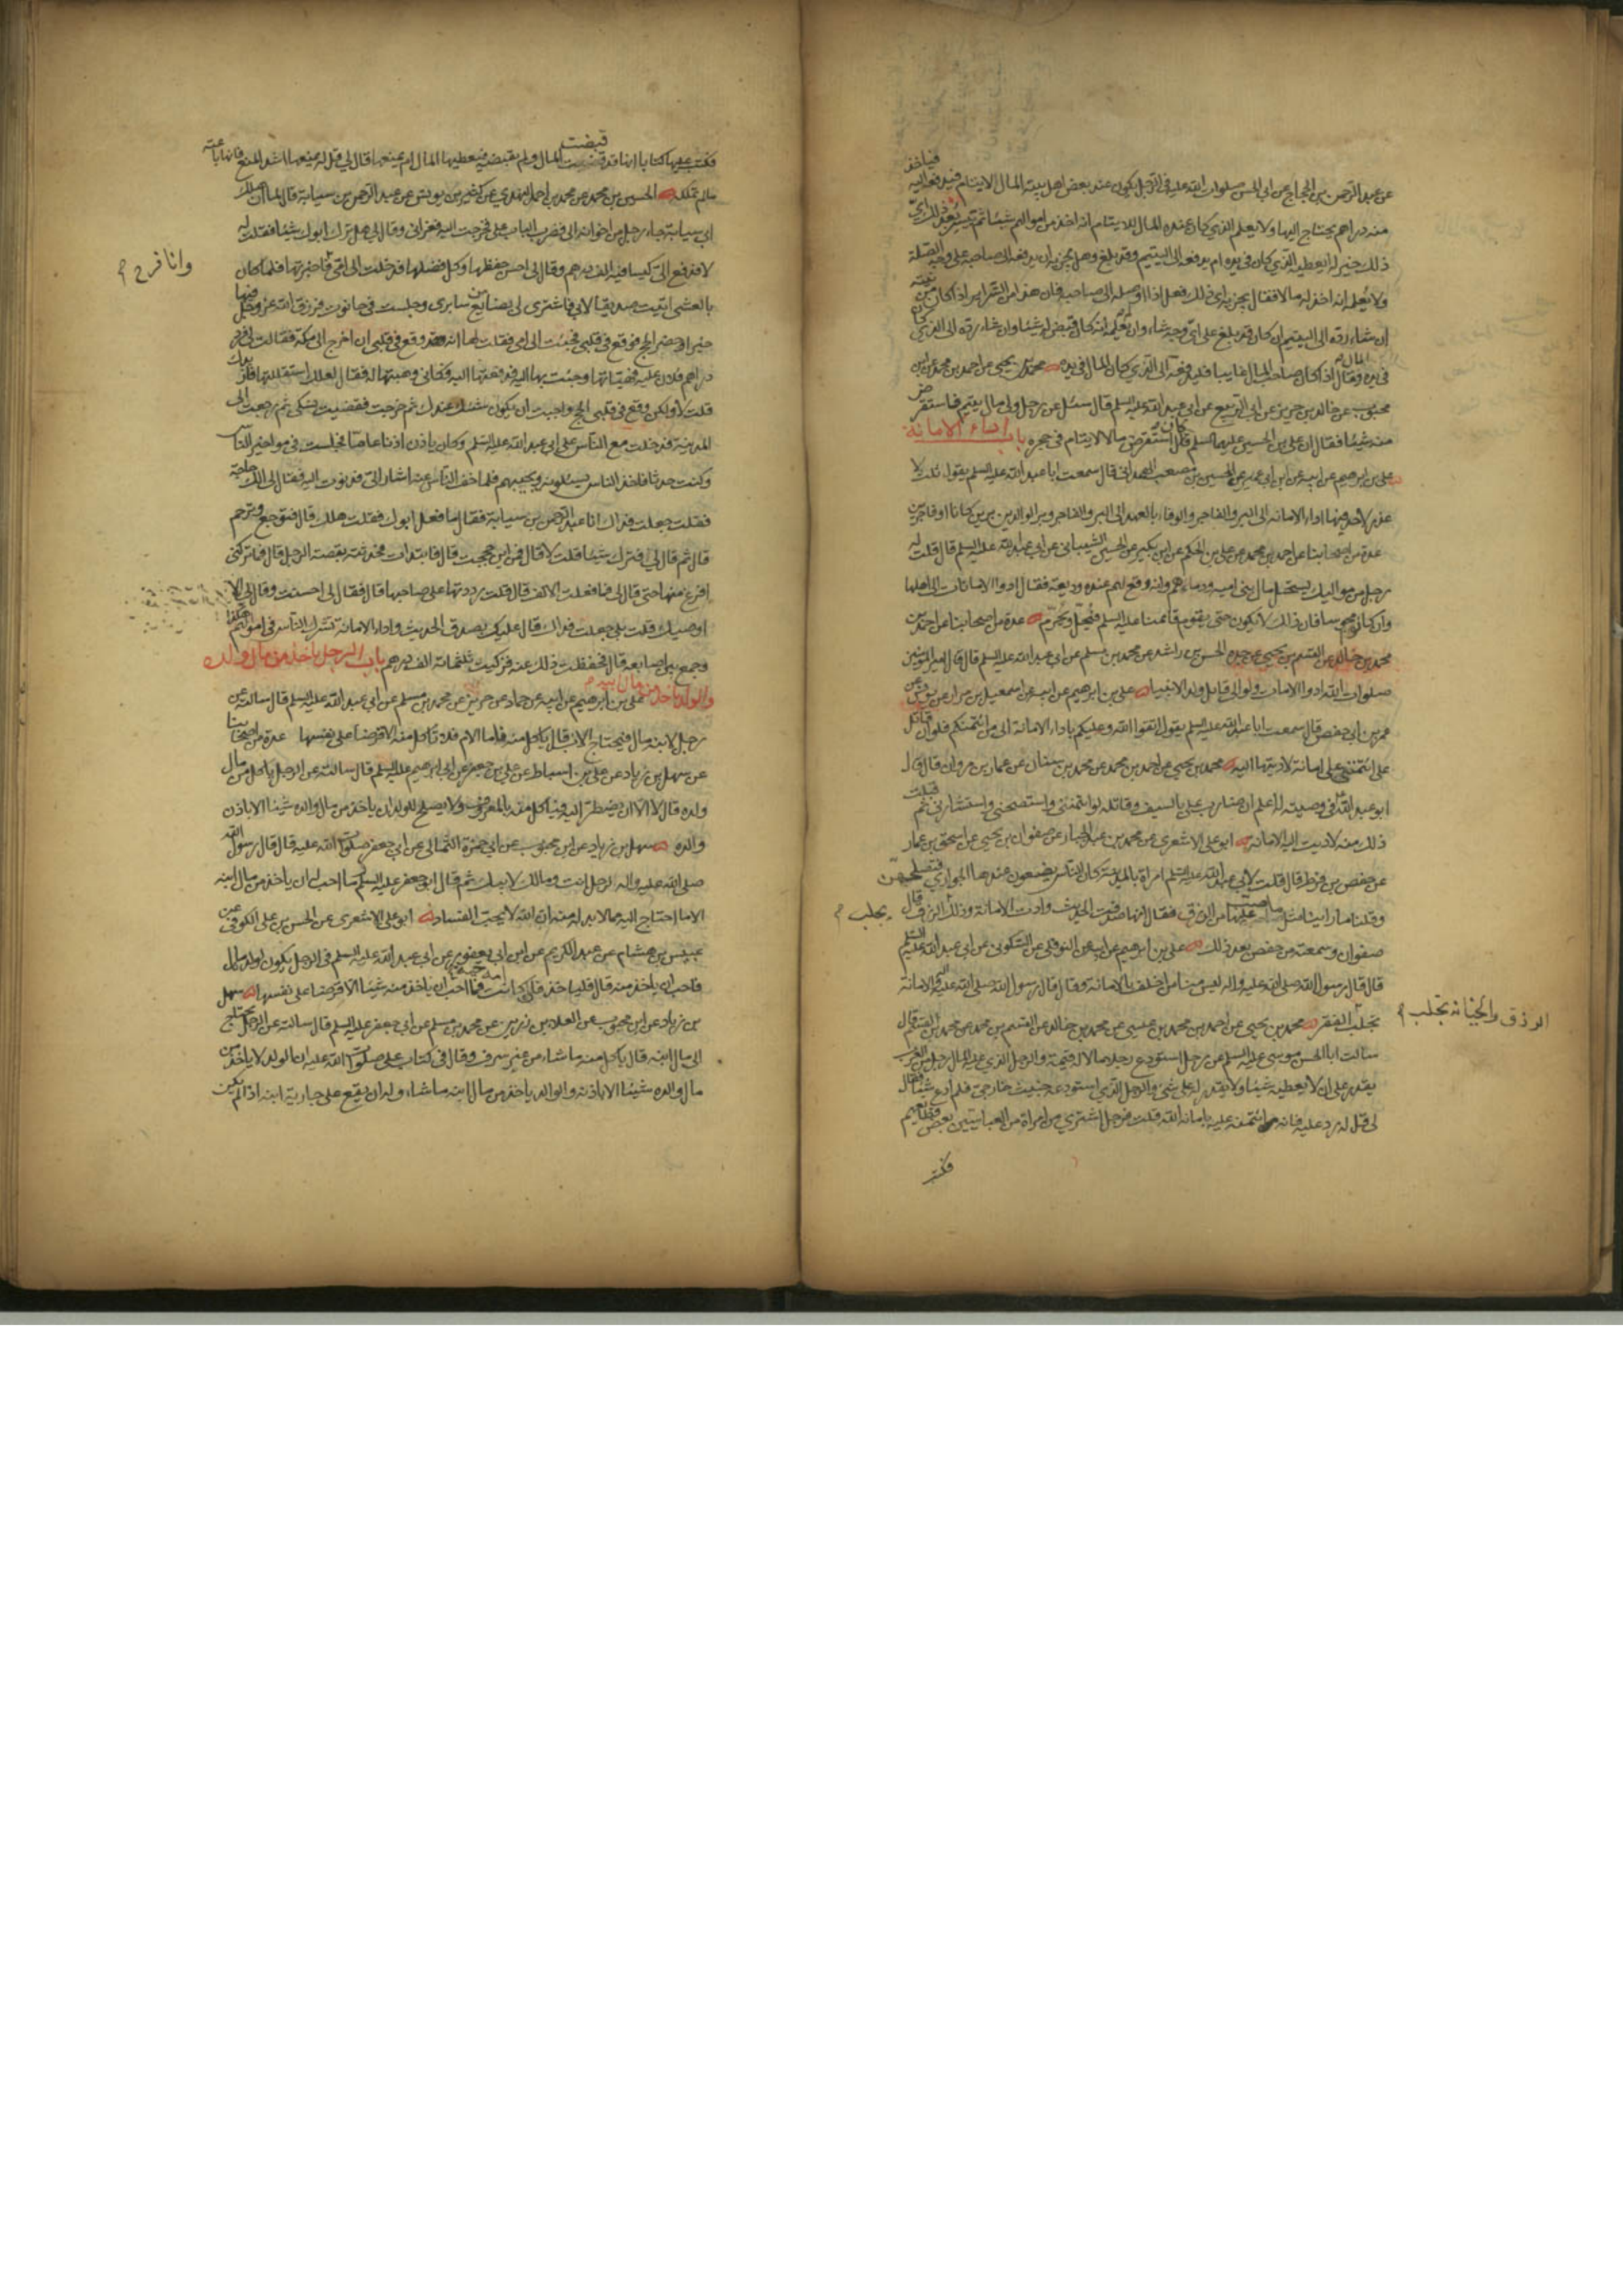 عن عبد الرحمن بن الحجاج عن ابي الحسن صلوات الله عليه في الرجل يكون عند بعض اهل بيته المال لايتام فيدفعه اليه فياخذ
منه دراهم يحتاج اليها ولا يعلم الذي كان عنده المال للايتام انه اخذ من اموالهم شيئا ثم تيسر بعد ذلك اي
ذلك خير له ايعطيه الذي كان في يده ام يدفعه الى اليتيم وقد بلغ وهل يجزيه ان يدفعه الى صاحبه على وجه الصلة
ولا يعلمه انه اخذ له مالا فقال يجزيه اي ذلك فعل اذا اوصله الى صاحبه فان هذا من السرائر اذا كان من نيته
ان شاء رده الى اليتيم ان كان قد بلغ على اي وجه شاء وان لم يعلمه انه كان قبض له شيئا وان شاء رده الى الذي كان
في يده المال وقال اذا كان صاحب المال غايبا فليدفعه الى الذي كان المال في يده محمد بن يحيى عن احمد بن محمد عن ابن
محبوب عن خالد بن جرير عن ابي الربيع عن ابي عبد الله عليه السلم قال سئل عن رجل ولي مال يتيم فاستقرض
منه شيئا فقال ان علي بن الحسين عليهما السلم قد كان استقرض مالا لايتام في حجره باب اداء الامانة
علي بن ابرهيم عن ابيه عن ابن ابي عمير عن الحسين بن مصعب الهمداني قال سمعت ابا عبد الله عليه السلم يقول ثلث لا
عذر لاحد فيها اداء الامانة الى البر والفاجر والوفاء بالعهد الى البر والفاجر وبر الوالدين برين كانا او فاجرين
عدة من اصحابنا عن احمد بن محمد عن علي بن الحكم عن ابن بكير عن الحسين الشيباني عن ابي عبد الله عليه السلم قال قلت له
رجل من مواليك يستحل مال بني امية ودماءهم وانه وقع لهم عنده وديعة فقال ادوا الامانات الى اهلها
وان كانوا مجوسا فان ذلك لا يكون حتى يقوم قائمنا عليه السلم فيحل ويحرم عدة من اصحابنا عن احمد بن
محمد بن خالد عن القسم بن يحيى عن جده الحسن بن راشد عن محمد بن مسلم عن ابي عبد الله عليه السلم قال قال امير المؤمنين
صلوات الله ادوا الامانات ولو الى قاتل ولد الانبياء علي بن ابرهيم عن ابيه عن اسمعيل بن مرار عن يونس عن
عمر بن ابي حفص قال سمعت ابا عبد الله عليه السلم يقول اتقوا الله وعليكم باداء الامانة الى من ائتمنكم فلو ان قاتل
علي ائتمنني على امانة لاديتها اليه محمد بن يحيى عن احمد بن محمد عن محمد بن سنان عن عمار بن مروان قال قال
ابو عبد الله ع في وصيته له اعلم ان ضارب علي بالسيف وقاتله لو ائتمنني واستنصحني واستشارني ثم قبلت
ذلك منه لاديت اليه الامانة ابو علي الاشعري عن محمد بن عبد الجبار عن صفوان بن يحيى عن اسحق بن عمار
عن حفص بن قرط قال قلت لابي عبد الله عليه السلم امراة بالمدينة كان الناس يضعون عندها الجواري فتصلحهن
وقلنا ما راينا مثل ما صب عليها من الرزق فقال انها صدقت الحديث وادت الامانة وذلك الرزق قال
يجلب م
صفوان وسمعته من حفص بعد ذلك علي بن ابرهيم عن ابيه عن النوفلي عن السكوني عن ابي عبد الله عليه السلم
قال قال رسول الله صلى الله عليه واله ليس منا من اخلف بالامانة وقال قال رسول الله صلى الله عليه واله الامانة
الرزق والخيانة تجلب م
تجلب الفقر محمد بن يحيى عن احمد بن محمد بن عيسى عن محمد بن خالد عن القسم بن محمد عن محمد بن القسم قال
سالت ابا الحسن موسى عليه السلم عن رجل استودع رجلا مالا له قيمة والرجل الذي عليه المال رجل من العرب
يقدر على ان لا يعطيه شيئا ولا يقدر له على شئ والرجل الذي استودعه خبيث خارجي فلم ادع شيئا فقال
لي قل له رد عليه فانه ائتمنه عليه بامانة الله قلت فرجل اشترى من امراة من العباسيين بعض قطايعهم
فكتب
فكتب عليها كتابا انها قد قبضت المال ولم تقبضه فيعطيها المال ام يمنعها قال لي قل له يمنعها اشد المنع فانها باعته
قبضت
ما لم تملكه الحسين بن محمد عن محمد بن احمد النهدي عن كثير بن يونس عن عبد الرحمن بن سيابة قال لما ان هلك
ابي سيابة جاء رجل من اخوانه الي فضرب الباب علي فخرجت اليه فعزاني وقال لي هل ترك ابوك شيئا فقلت له
لا فدفع الي كيسا فيه الف درهم وقال لي احسن حفظها وكل فضلها فدخلت الى امي فاخبرتها فلما كان
وانا فرح م
بالعشي اتيت صديقا لابي فاشترى لي بضائع من سابري وجلست في حانوت فرزق الله عز وجل فيها
خيرا وحضر الحج فوقع في قلبي فجئت الى امي فقلت لها انه قد وقع في قلبي ان اخرج الى مكة فقالت لي فرد
دراهم فلان عليه فهيأتها وجئت بها اليه فدفعتها اليه فكاني وهبتها له فقال لعلك استقللتها فازيدك
قلت لا ولكن وقع في قلبي الحج واحببت ان يكون شيئك عندك ثم خرجت فقضيت نسكي ثم رجعت الى
المدينة فدخلت مع الناس على ابي عبد الله عليه السلم وكان ياذن اذنا عاما فجلست في مواخير الناس
وكنت حدثا فاخذ الناس يسئلونه ويجيبهم فلما خف الناس عنه اشار الي فدنوت اليه فقال لي الك حاجة
فقلت جعلت فداك انا عبد الرحمن بن سيابة فقال ما فعل ابوك فقلت هلك قال فتوجع وترحم
قال ثم قال لي افترك شيئا قلت لا قال فمن اين حججت قال فابتدات فحدثته بقصة الرجل قال فما تركني
افرغ منها حتى قال لي فما فعلت الالف قال قلت رددتها على صاحبها قال فقال لي احسنت وقال لي الا
اوصيك قلت بلى جعلت فداك قال عليك بصدق الحديث واداء الامانة تشرك الناس في اموالهم هكذا
وجمع بين اصابعه قال فحفظت ذلك عنه فزكيت ثلثمائة الف درهم باب الرجل ياخذ من مال ولده
والولد ياخذ من مال ابيه م علي بن ابرهيم عن ابيه عن حماد عن حريز عن محمد بن مسلم عن ابي عبد الله عليه السلم قال سالته عن
رجل لابنه مال فيحتاج الاب قال ياكل منه فاما الام فلا تاكل منه الا قرضا على نفسها عدة من اصحابنا
عن سهل بن زياد عن علي بن اسباط عن علي بن جعفر عن ابي ابرهيم عليه السلم قال سالته عن الرجل ياكل من مال
ولده قال لا الا ان يضطر اليه فياكل منه بالمعروف ولا يصلح للولد ان ياخذ من مال والده شيئا الا باذن
والده سهل بن زياد عن ابن محبوب عن ابي حمزة الثمالي عن ابي جعفر صلوات الله عليه قال قال رسول الله
صلى الله عليه واله لرجل انت ومالك لابيك ثم قال ابو جعفر عليه السلم ما احب له ان ياخذ من مال ابنه
الا ما احتاج اليه مما لا بد له منه ان الله لا يحب الفساد ابو علي الاشعري عن الحسن بن علي الكوفي عن
عبيس بن هشام عن عبد الكريم عن ابن ابي يعفور عن ابي عبد الله عليه السلم في الرجل يكون لولده مال
فاحب ان ياخذ منه قال فلياخذ فان كانت امه حية فما احب ان ياخذ منه شيئا الا قرضا على نفسها سهل
بن زياد عن ابن محبوب عن العلاء بن رزين عن محمد بن مسلم عن ابي جعفر عليه السلم قال سالته عن الرجل يحتاج
الى مال ابنه قال ياكل منه ما شاء من غير سرف وقال في كتاب علي صلوات الله عليه ان الولد لا ياخذ من
مال والده شيئا الا باذنه والوالد ياخذ من مال ابنه ما شاء وله ان يقع على جارية ابنه اذا لم يكن